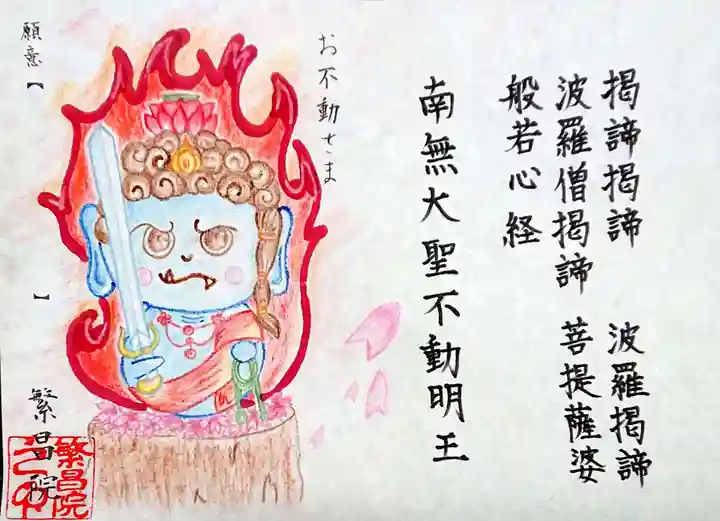 揭諦揭諦　波羅揭諦
波羅僧揭諦　菩提薩婆
般若心経
南無大聖不動明王
お不動さま
願意【　】
繁昌院
繁昌院